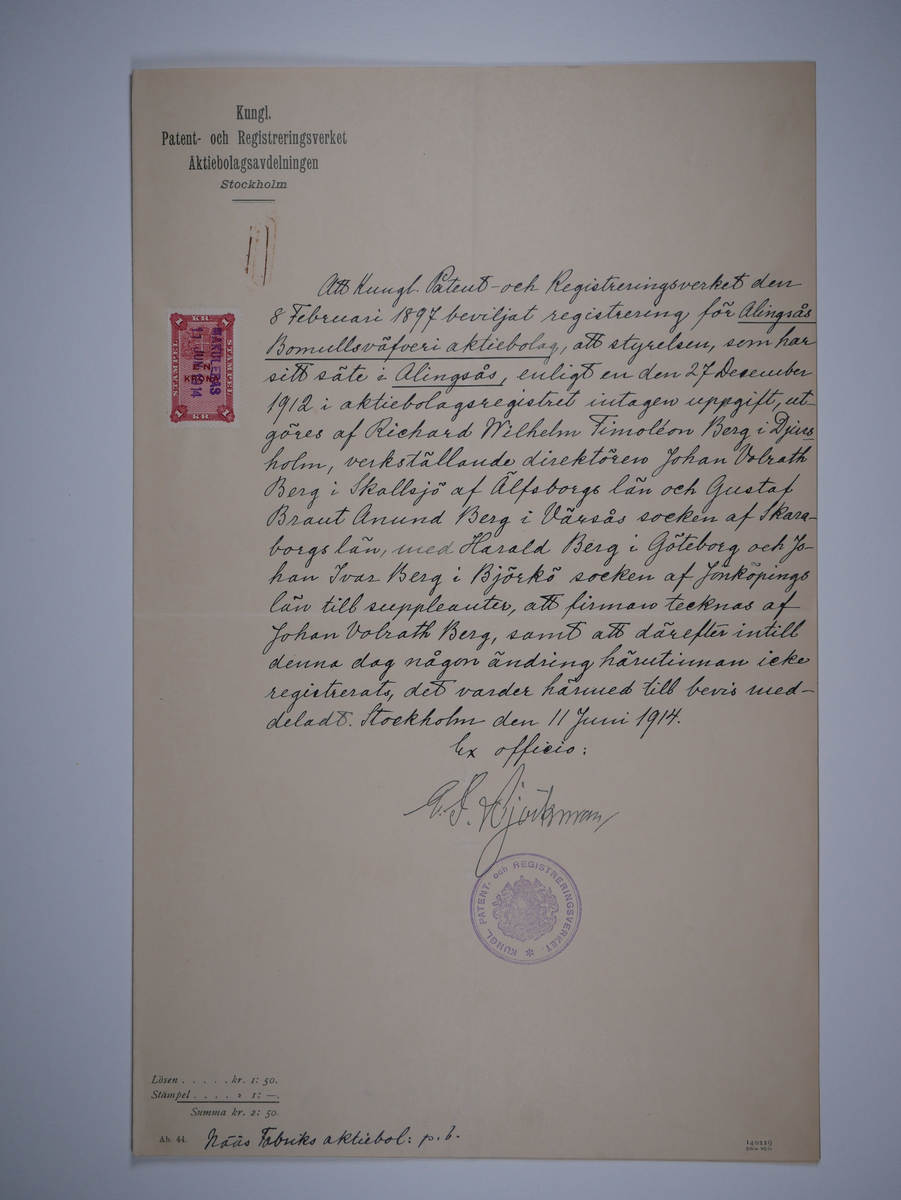 Kungl.
Patent- och Registreringsverket
Aktiebolagsavdelningen
Stockholm
Att Kungl. Patent- och Registreringsverket den
8 Februari 1897 beviljat registrering för Alingsås
Bomullsväfveri aktiebolag, att styrelsen, som har
sitt säte i Alingsås, enligt en den 27 December
1912 i aktiebolagsregistret intagen uppgift, ut-
göres af Richard Wilhelm Timoléon Berg i Djurs
holm, verkställande direktören Johan Volrath
Berg i Skallsjö af Älfsborgs län och Gustaf
Braut Anund Berg i Värsås socken af Skara-
borgs län, med Harald Berg i Göteborg och Jo-
han Ivar Berg i Björkö socken af Jönköpings
län till suppleanter, att firman tecknas af
Johan Volrath Berg, samt att därefter intill
denna dag någon ändring härutinnan icke
registrerats, det varder härmed till bevis med-
deladt. Stockholm den 11 Juni 1914.
Ex officio:
Björkman
1 KR 1
STÄMPEL
STÄMPEL
EN
KRONA
1 KR 1
MAKULERAS
11 JUN 1914
KUNGL. PATENT- och REGISTRERINGSVERKET
Lösen . . . . . kr. 1: 50.
Stämpel . . . . » 1: —.
Summa kr. 2: 50.
Ab. 44.
Nääs Fabriks aktiebol: p. b.
140229